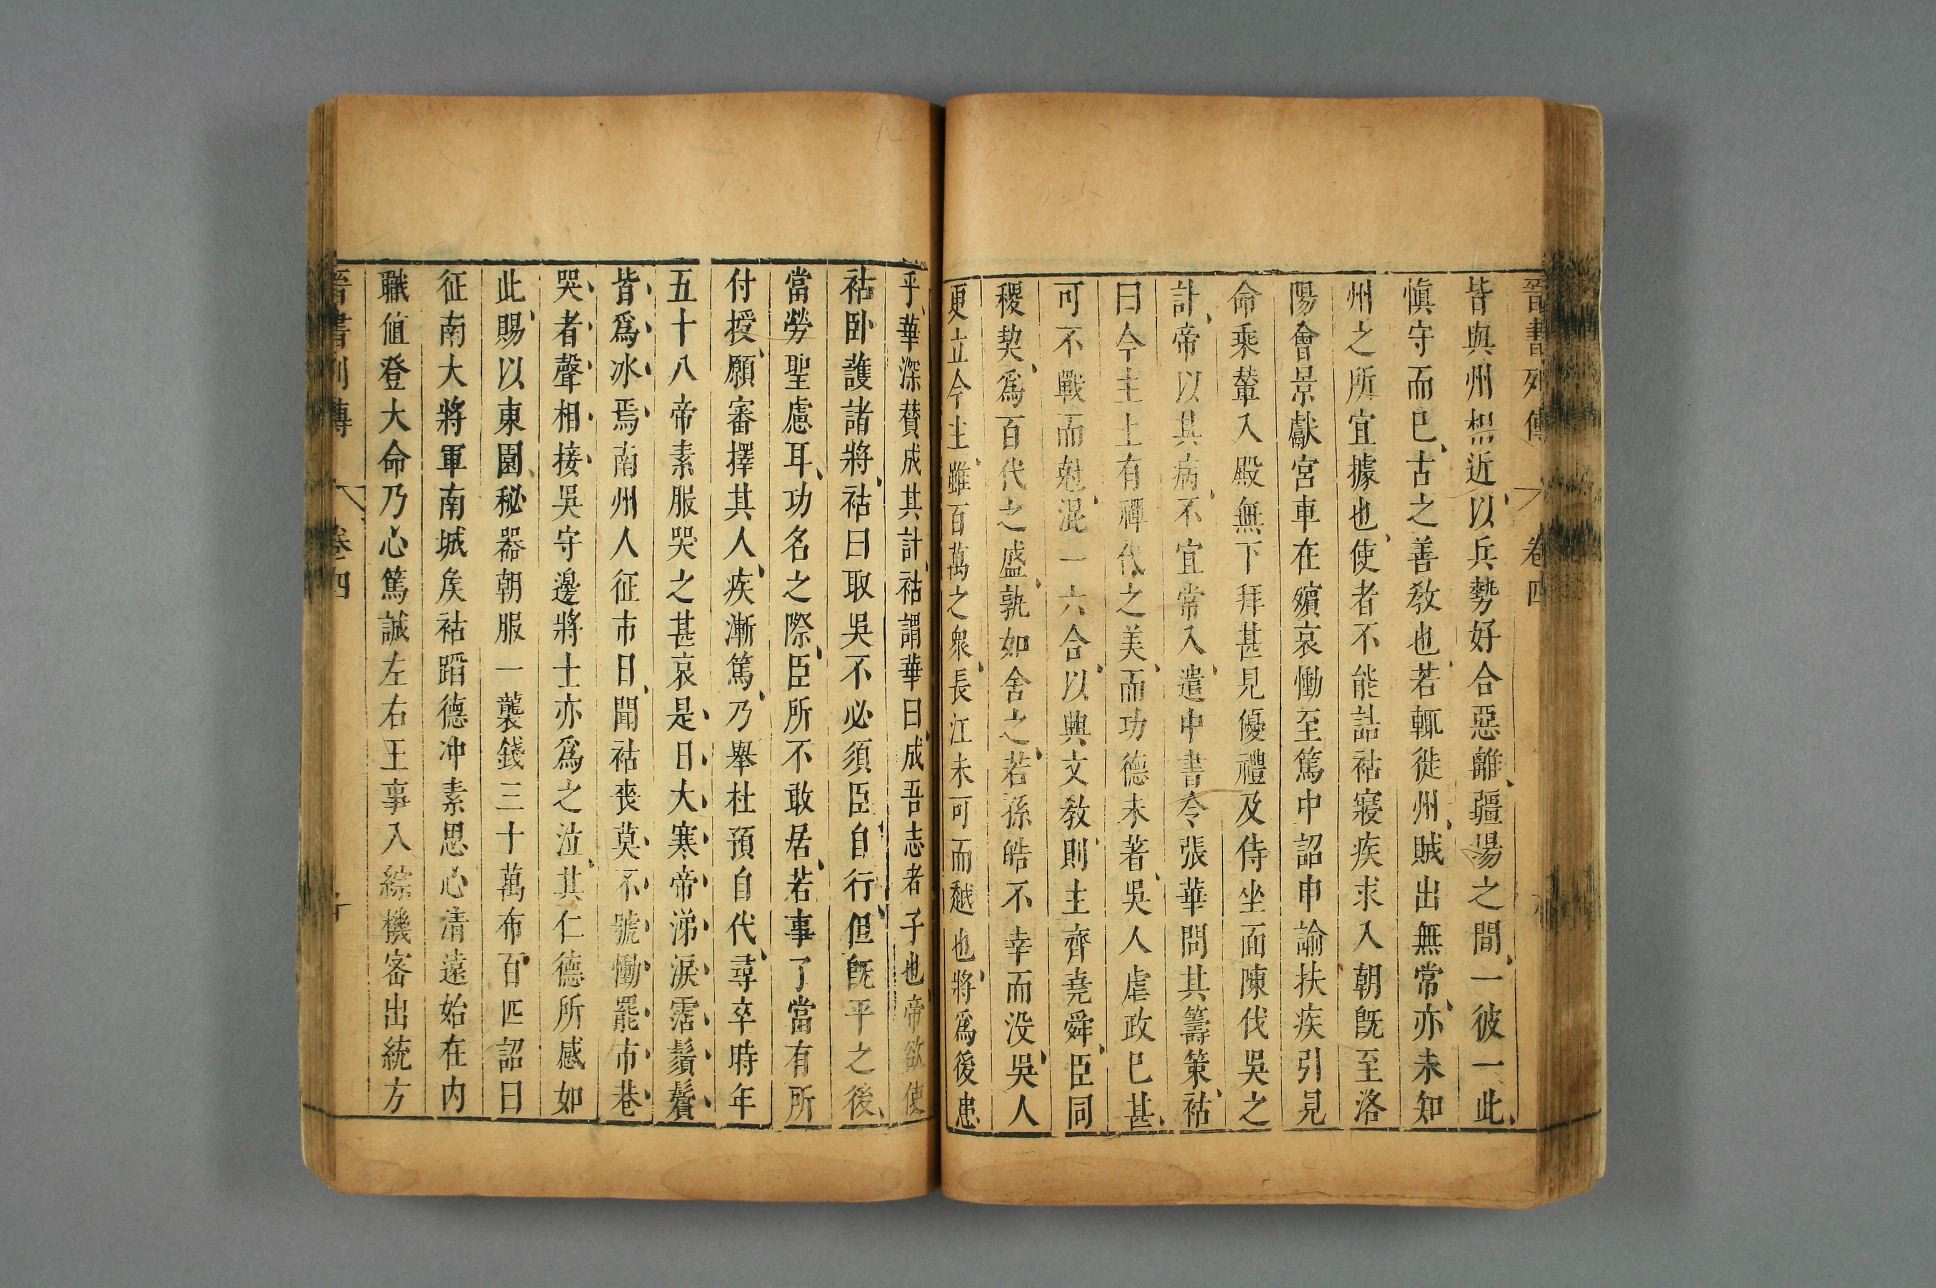 晉書列傳 卷四
皆與州相近以兵勢好合惡離疆埸之間一彼一此
慎守而巳古之善教也若輒徙州賊出無常亦未知
州之所宜據也使者不能詰祜寢疾求入朝旣至洛
陽會景獻宮車在殯哀慟至篤中詔申諭扶疾引見
命乘輦入殿無下拜甚見優禮及侍坐面陳伐吳之
計帝以其病不宜常入遣中書令張華問其籌策祜
曰今主上有禪代之美而功德未著吳人虐政巳甚
可不戰而剋混一六合以興文教則主齊堯舜臣同
稷契爲百代之盛孰如舍之若孫皓不幸而没吳人
更立令主雖百萬之衆長江未可而越也將爲後患
乎華深贊成其計祜謂華曰成吾志者子也帝欲使
祜卧護諸將祜曰取吳不必須臣自行但旣平之後
當勞聖慮耳功名之際臣所不敢居若事了當有所
付授願審擇其人疾漸篤乃舉杜預自代尋卒時年
五十八帝素服哭之甚哀是日大寒帝涕淚霑鬚鬢
皆爲冰焉南州人征市日聞祜喪莫不號慟罷市巷
哭者聲相接吳守邊將士亦爲之泣其仁德所感如
此賜以東園秘器朝服一襲錢三十萬布百匹詔曰
征南大將軍南城矦祜蹈德冲素思心清遠始在内
職值登大命乃心篤誠左右王事入綜機密出統方
晉書列傳 卷四